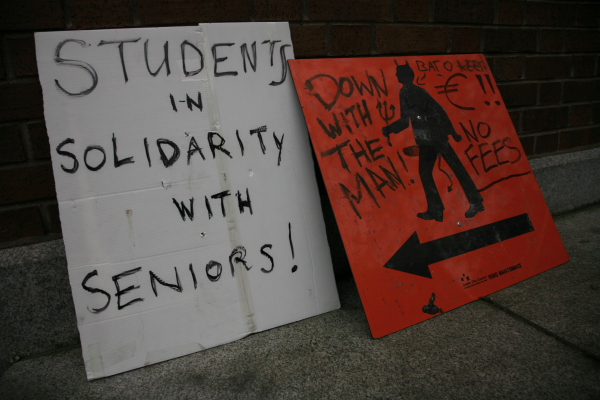 STUDENTS
IN
SOLIDARITY
WITH
SENIORS!
DOWN
WITH
THE
MAN!
€!!
NO
FEES